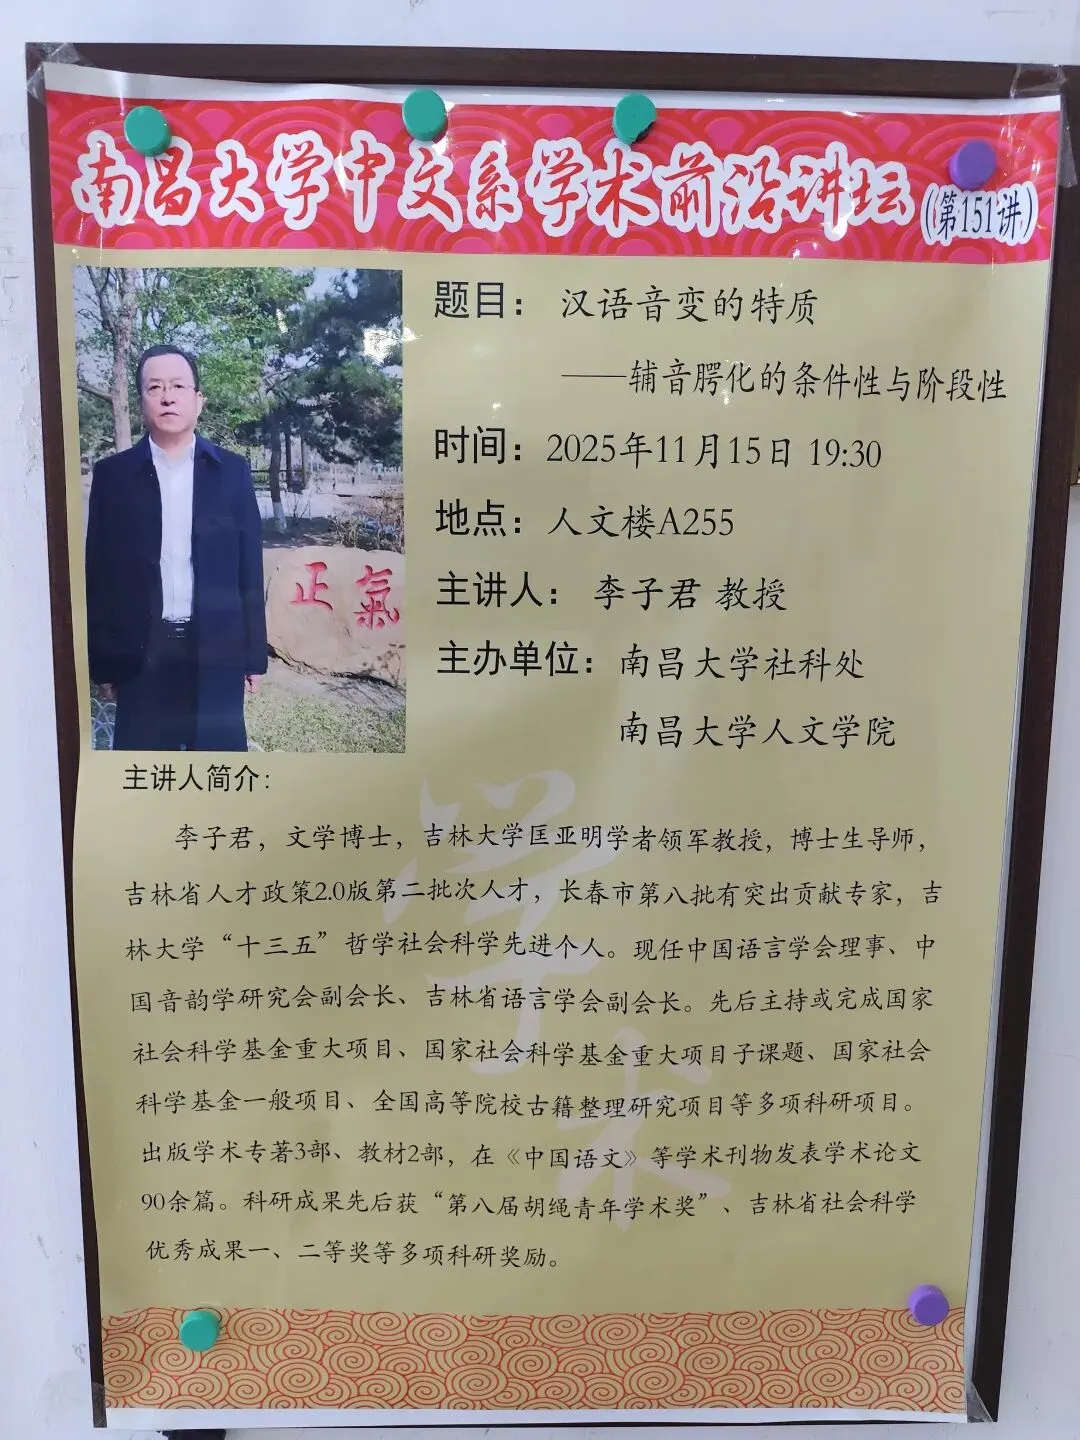 南昌大学中文系学术前沿讲坛(第151讲)
题目：汉语音变的特质
——辅音腭化的条件性与阶段性
时间：2025年11月15日 19:30
地点：人文楼A255
主讲人：李子君 教授
主办单位：南昌大学社科处
南昌大学人文学院
正氣
主讲人简介：
李子君，文学博士，吉林大学匡亚明学者领军教授，博士生导师，
吉林省人才政策2.0版第二批次人才，长春市第八批有突出贡献专家，吉
林大学“十三五”哲学社会科学先进个人。现任中国语言学会理事、中
国音韵学研究会副会长、吉林省语言学会副会长。先后主持或完成国家
社会科学基金重大项目、国家社会科学基金重大项目子课题、国家社会
科学基金一般项目、全国高等院校古籍整理研究项目等多项科研项目。
出版学术专著3部、教材2部，在《中国语文》等学术刊物发表学术论文
90余篇。科研成果先后获“第八届胡绳青年学术奖”、吉林省社会科学
优秀成果一、二等奖等多项科研奖励。
学术